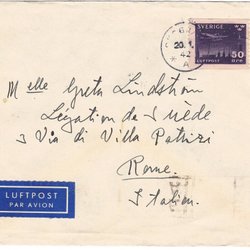 20.1.
42
A
SVERIGE
LUFTPOST
50
ÖRE
Mlle Greta Lindström
Légation de Suède
3 Via di Villa Patrizi
Rome.
Italien.
LUFTPOST
PAR AVION